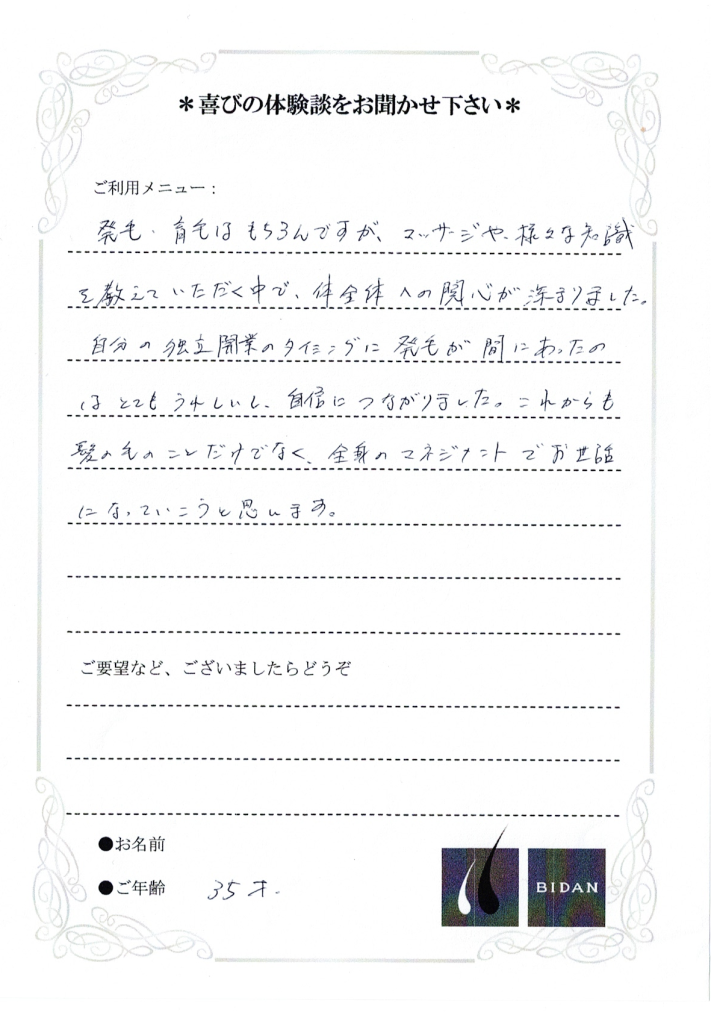 ＊喜びの体験談をお聞かせ下さい＊
ご利用メニュー：
発毛・育毛はもちろんですが、マッサージや、様々な知識
を教えていただく中で、体全体への関心が深まりました。
自分の独立開業のタイミングに発毛が間にあったの
はとてもうれしいし、自信につながりました。これからも
髪の毛のことだけでなく、全身のマネジメントでお世話
になっていこうと思います。
ご要望など、ございましたらどうぞ
●お名前
●ご年齢 35才.
BIDAN